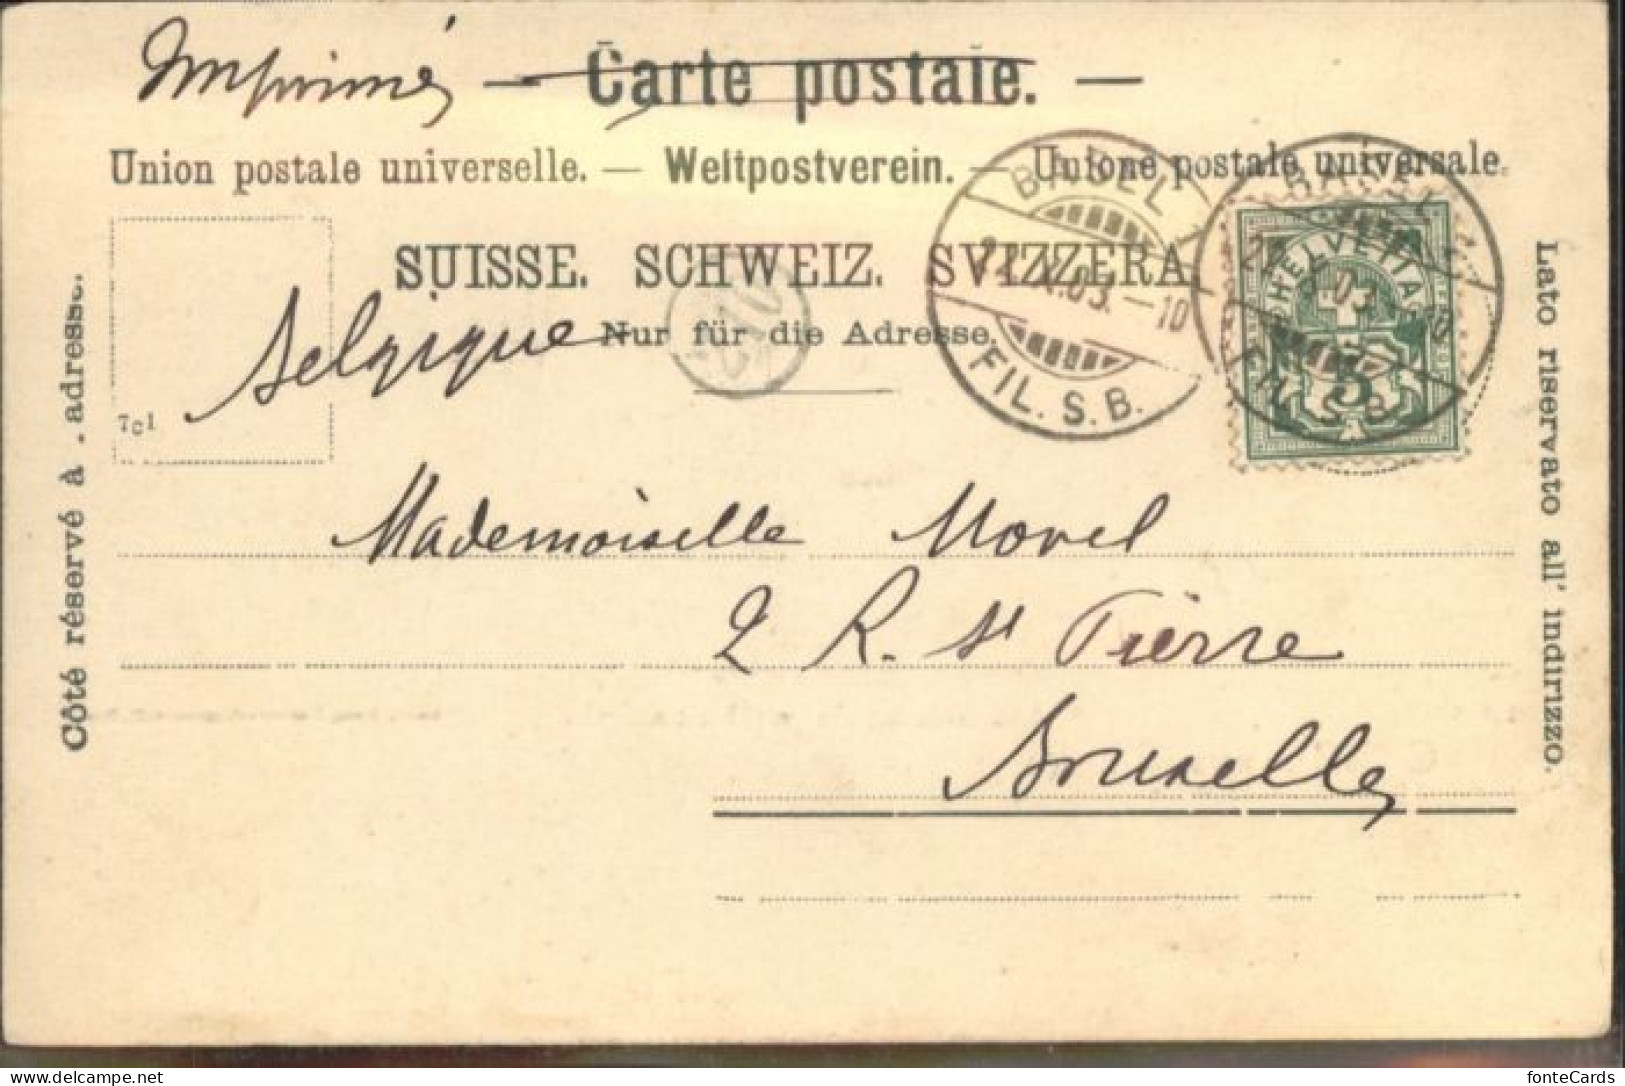 Imprimé — Carte postale. —
Union postale universelle. — Weltpostverein. — Unione postale universale.
SUISSE. SCHWEIZ. SVIZZERA
Belgique
Nur für die Adresse.
7c1
BASEL
22. X.03.–10
FIL. S. B.
HELVETIA
5
BASEL
FIL. S. B.
Côté réservé à . adresse.
Lato riservato all' indirizzo.
Mademoiselle Morel
2 R. St Pierre
Bruxelles
fonteCards